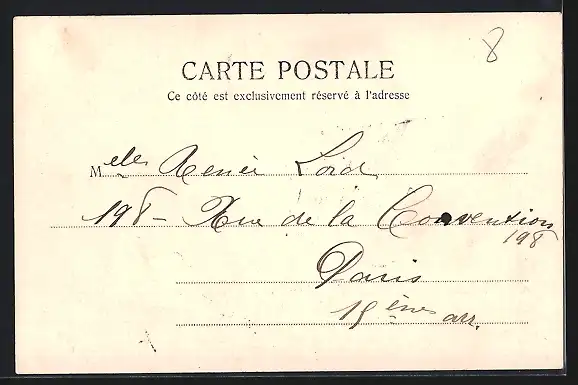 8
CARTE POSTALE
Ce côté est exclusivement réservé à l'adresse
Melle Renée Lord
198 - Rue de la Convention
198
Paris
15ème arr.